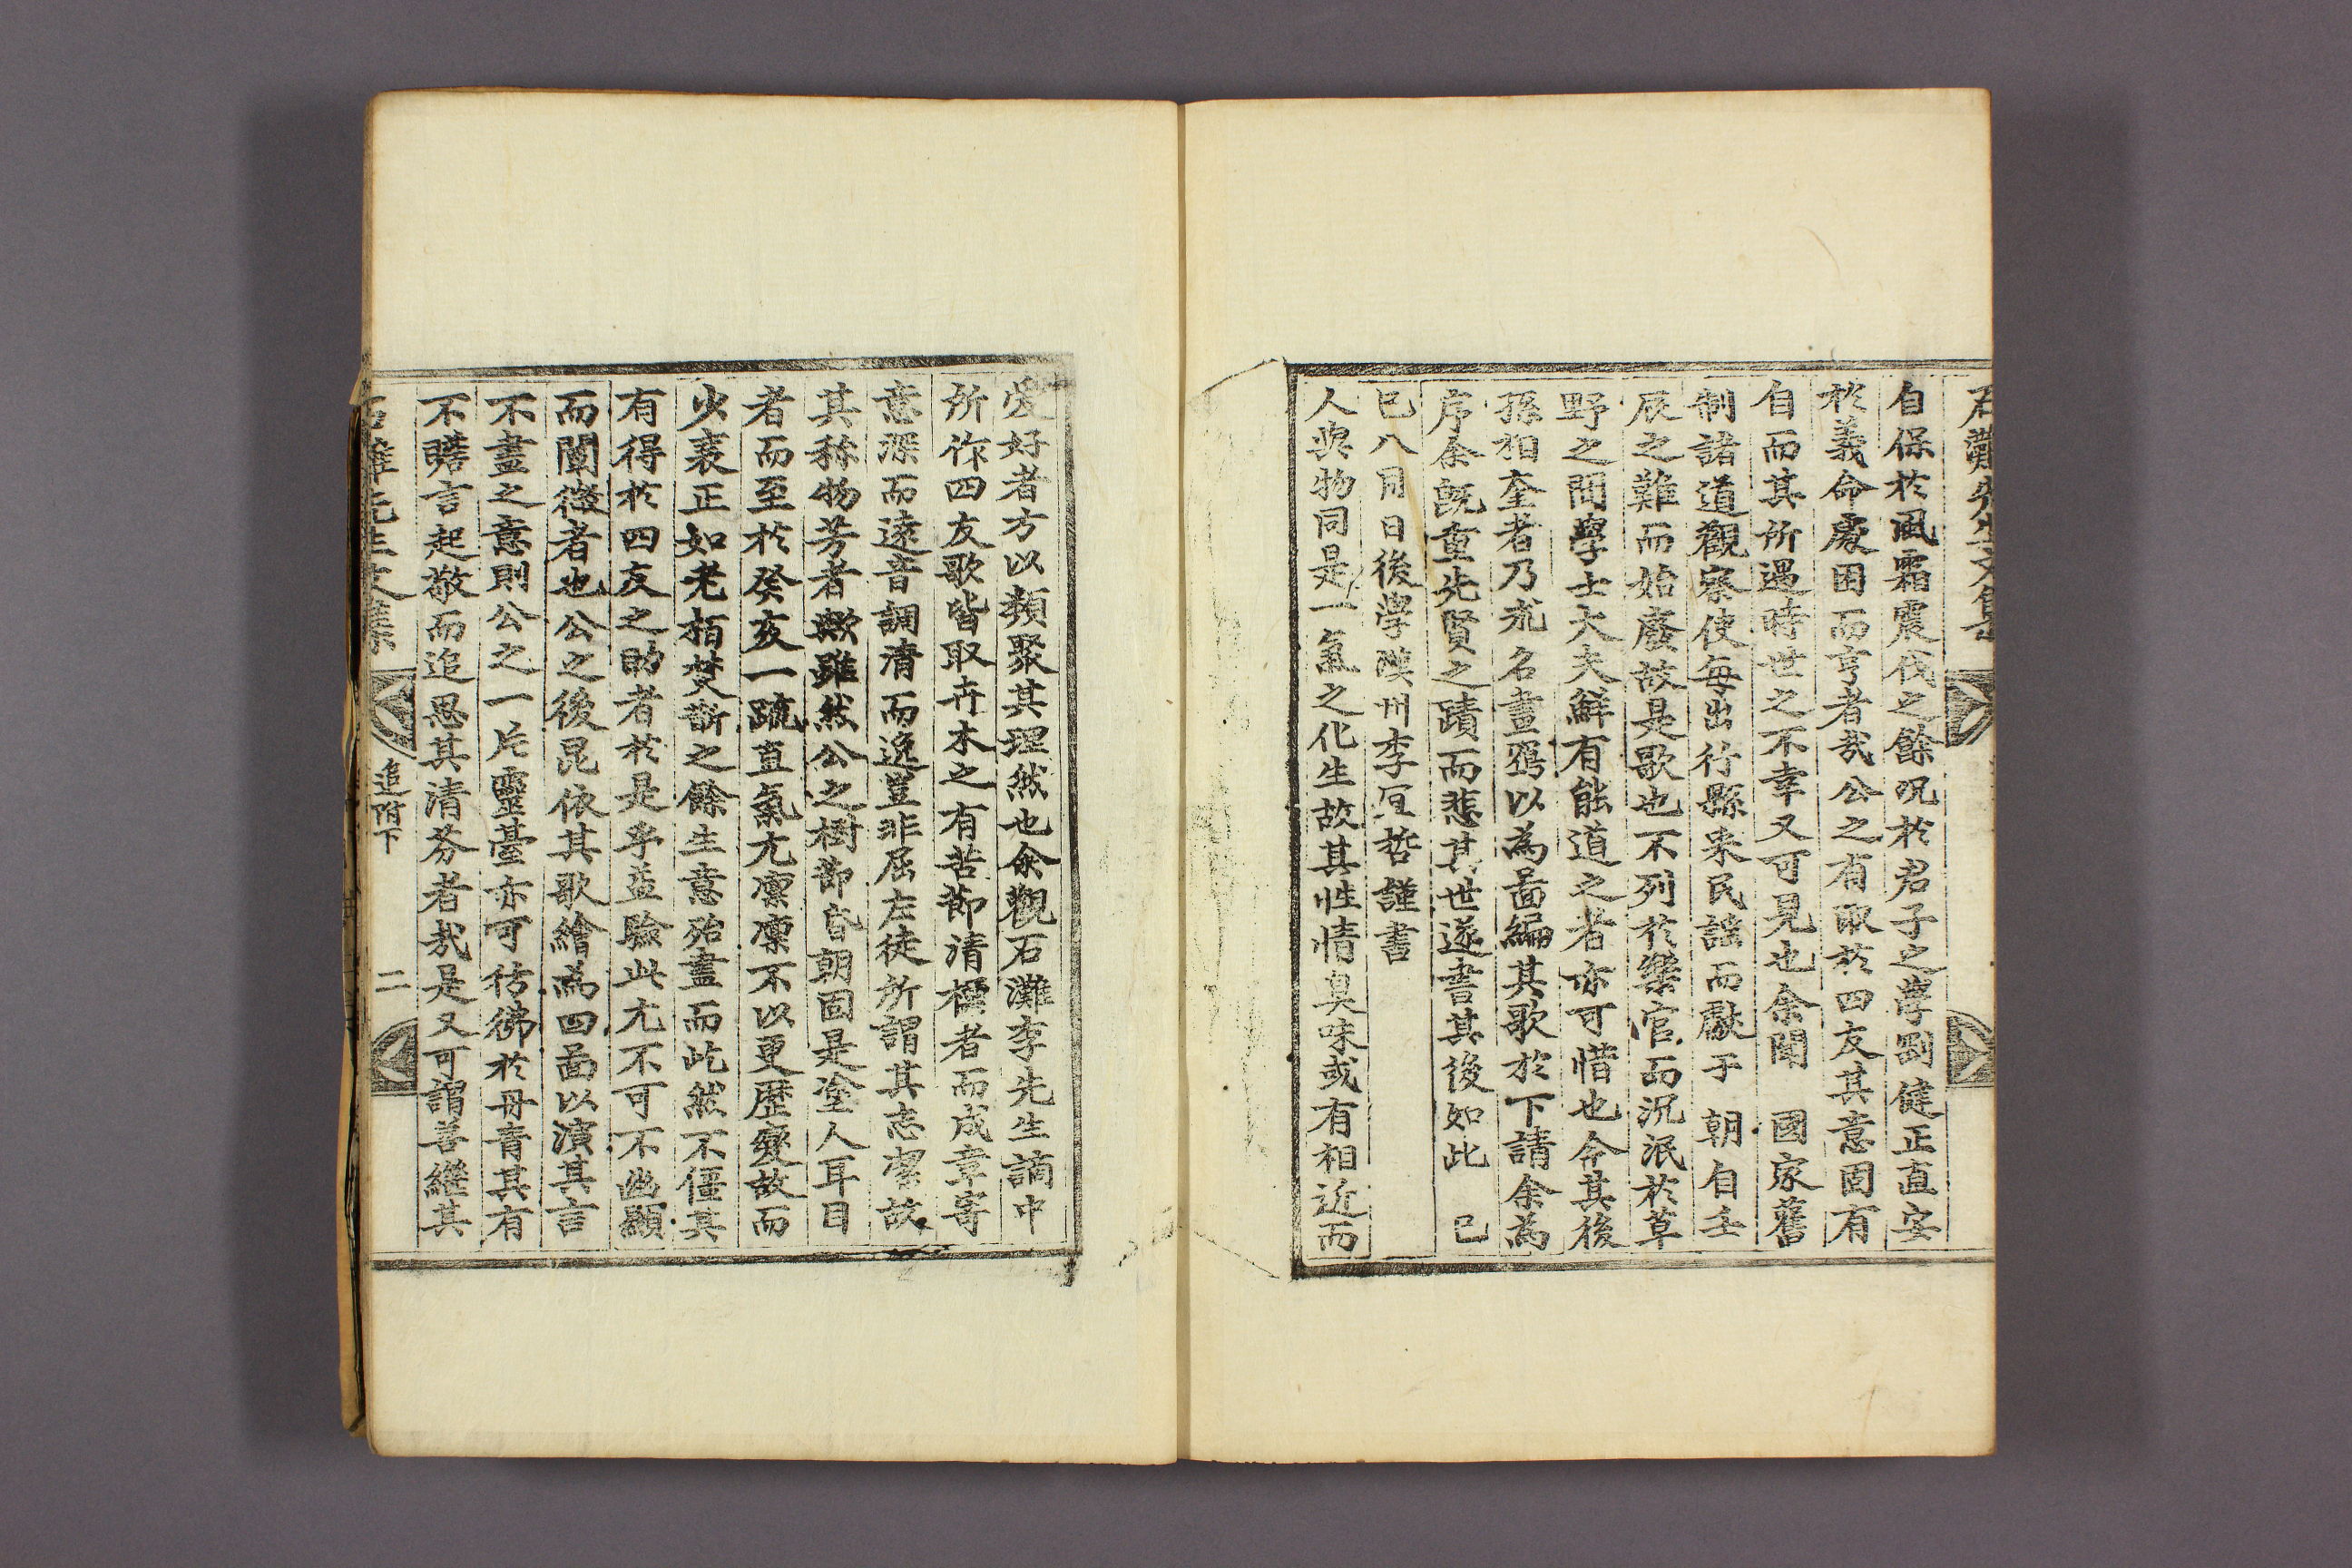 石灘先生文集
自保於風霜震伐之餘況於君子之學剛健正直安
於義命處困而亨者哉公之有取於四友其意固有
自而其所遇時世之不幸又可見也余聞 國家舊
制諸道觀察使每出行縣采民謠而獻于 朝自壬
辰之難而始廢故是歌也不列於樂官而沉泯於草
野之間學士大夫鮮有能道之者亦可惜也今其後
孫相奎者乃求名畫爲以為啚編其歌於下請余為
序余旣重先賢之蹟而悲其世遂書其後如此 己
巳八月 日後學漢州李 哲謹書
人與物同是一氣之化生故其性情臭味或有相近而
愛好者方以類聚其理然也余觀石灘李先生謫中
所作四友歌皆取卉木之有苦節清標者而成章寄
意深而遠音調清而逸豈非屈左徒所謂其志潔故
其称物芳者歟雖然公之樹節昏朝固是塗人耳目
者而至於癸亥一疏直氣尤凜凜不以更歷變故而
少衰正如老栢焚斮之餘生意殆盡而屹然不僵其
有得於四友之助者於是乎益驗此尤不可不幽顯
而闡微者也公之後昆依其歌繪為四啚以演其言
不盡之意則公之一片靈臺亦可彷彿於丹靑其有
不瞻言起敬而追思其清芬者哉是又可謂善繼其
石灘先生文集 追附下 二